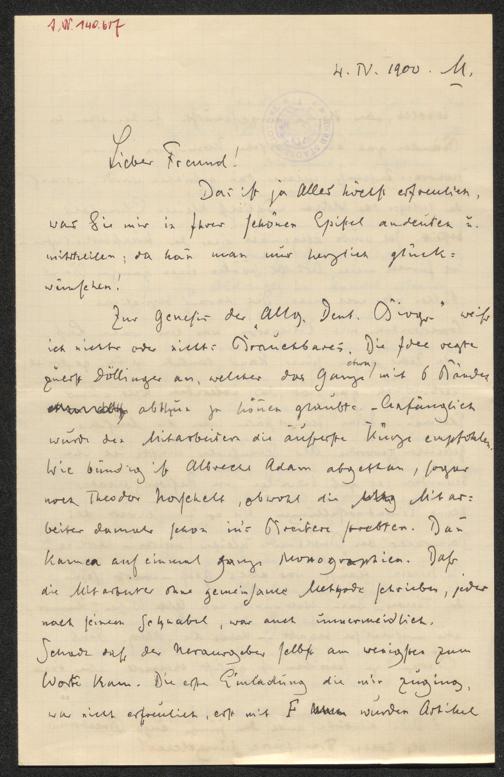 J.N. 140.617
4. IV. 1900. M.
Lieber Freund!
Das ist ja Alles höchst erfreulich,
was Sie mir in Ihrer schönen Epistel andeuten u.
mittheilen; da kañ man nur herzlich glück-
wünschen!
Zur Genesis der "Allg. Deut. Biogr" weiß
ich nichts oder nichts Brauchbares. Die Idee regte
zuerst Döllinger an, welcher das Ganze schon mit 6 Bänden
abthun zu köñen glaubte. Anfänglich
wurde den Mitarbeitern die äußerste Kürze empfohlen.
Wie bündig ist Albrecht Adam abgethan, sogar
noch Theodor Horschelt, obwohl die Mitar-
beiter damals schon in's Breitere strebten. Dañ
kamen auf einmal ganze Monographien. Daß
die Mitarbeiter ohne gemeinsame Methode schrieben, jeder
nach seinem Schnabel, war auch unvermeidlich.
Schade daß der Herausgeber selbst am wenigsten zum
Worte kam. Die erste Einladung die mir zuging,
war nicht erfreulich, erst mit F wurden Artikel